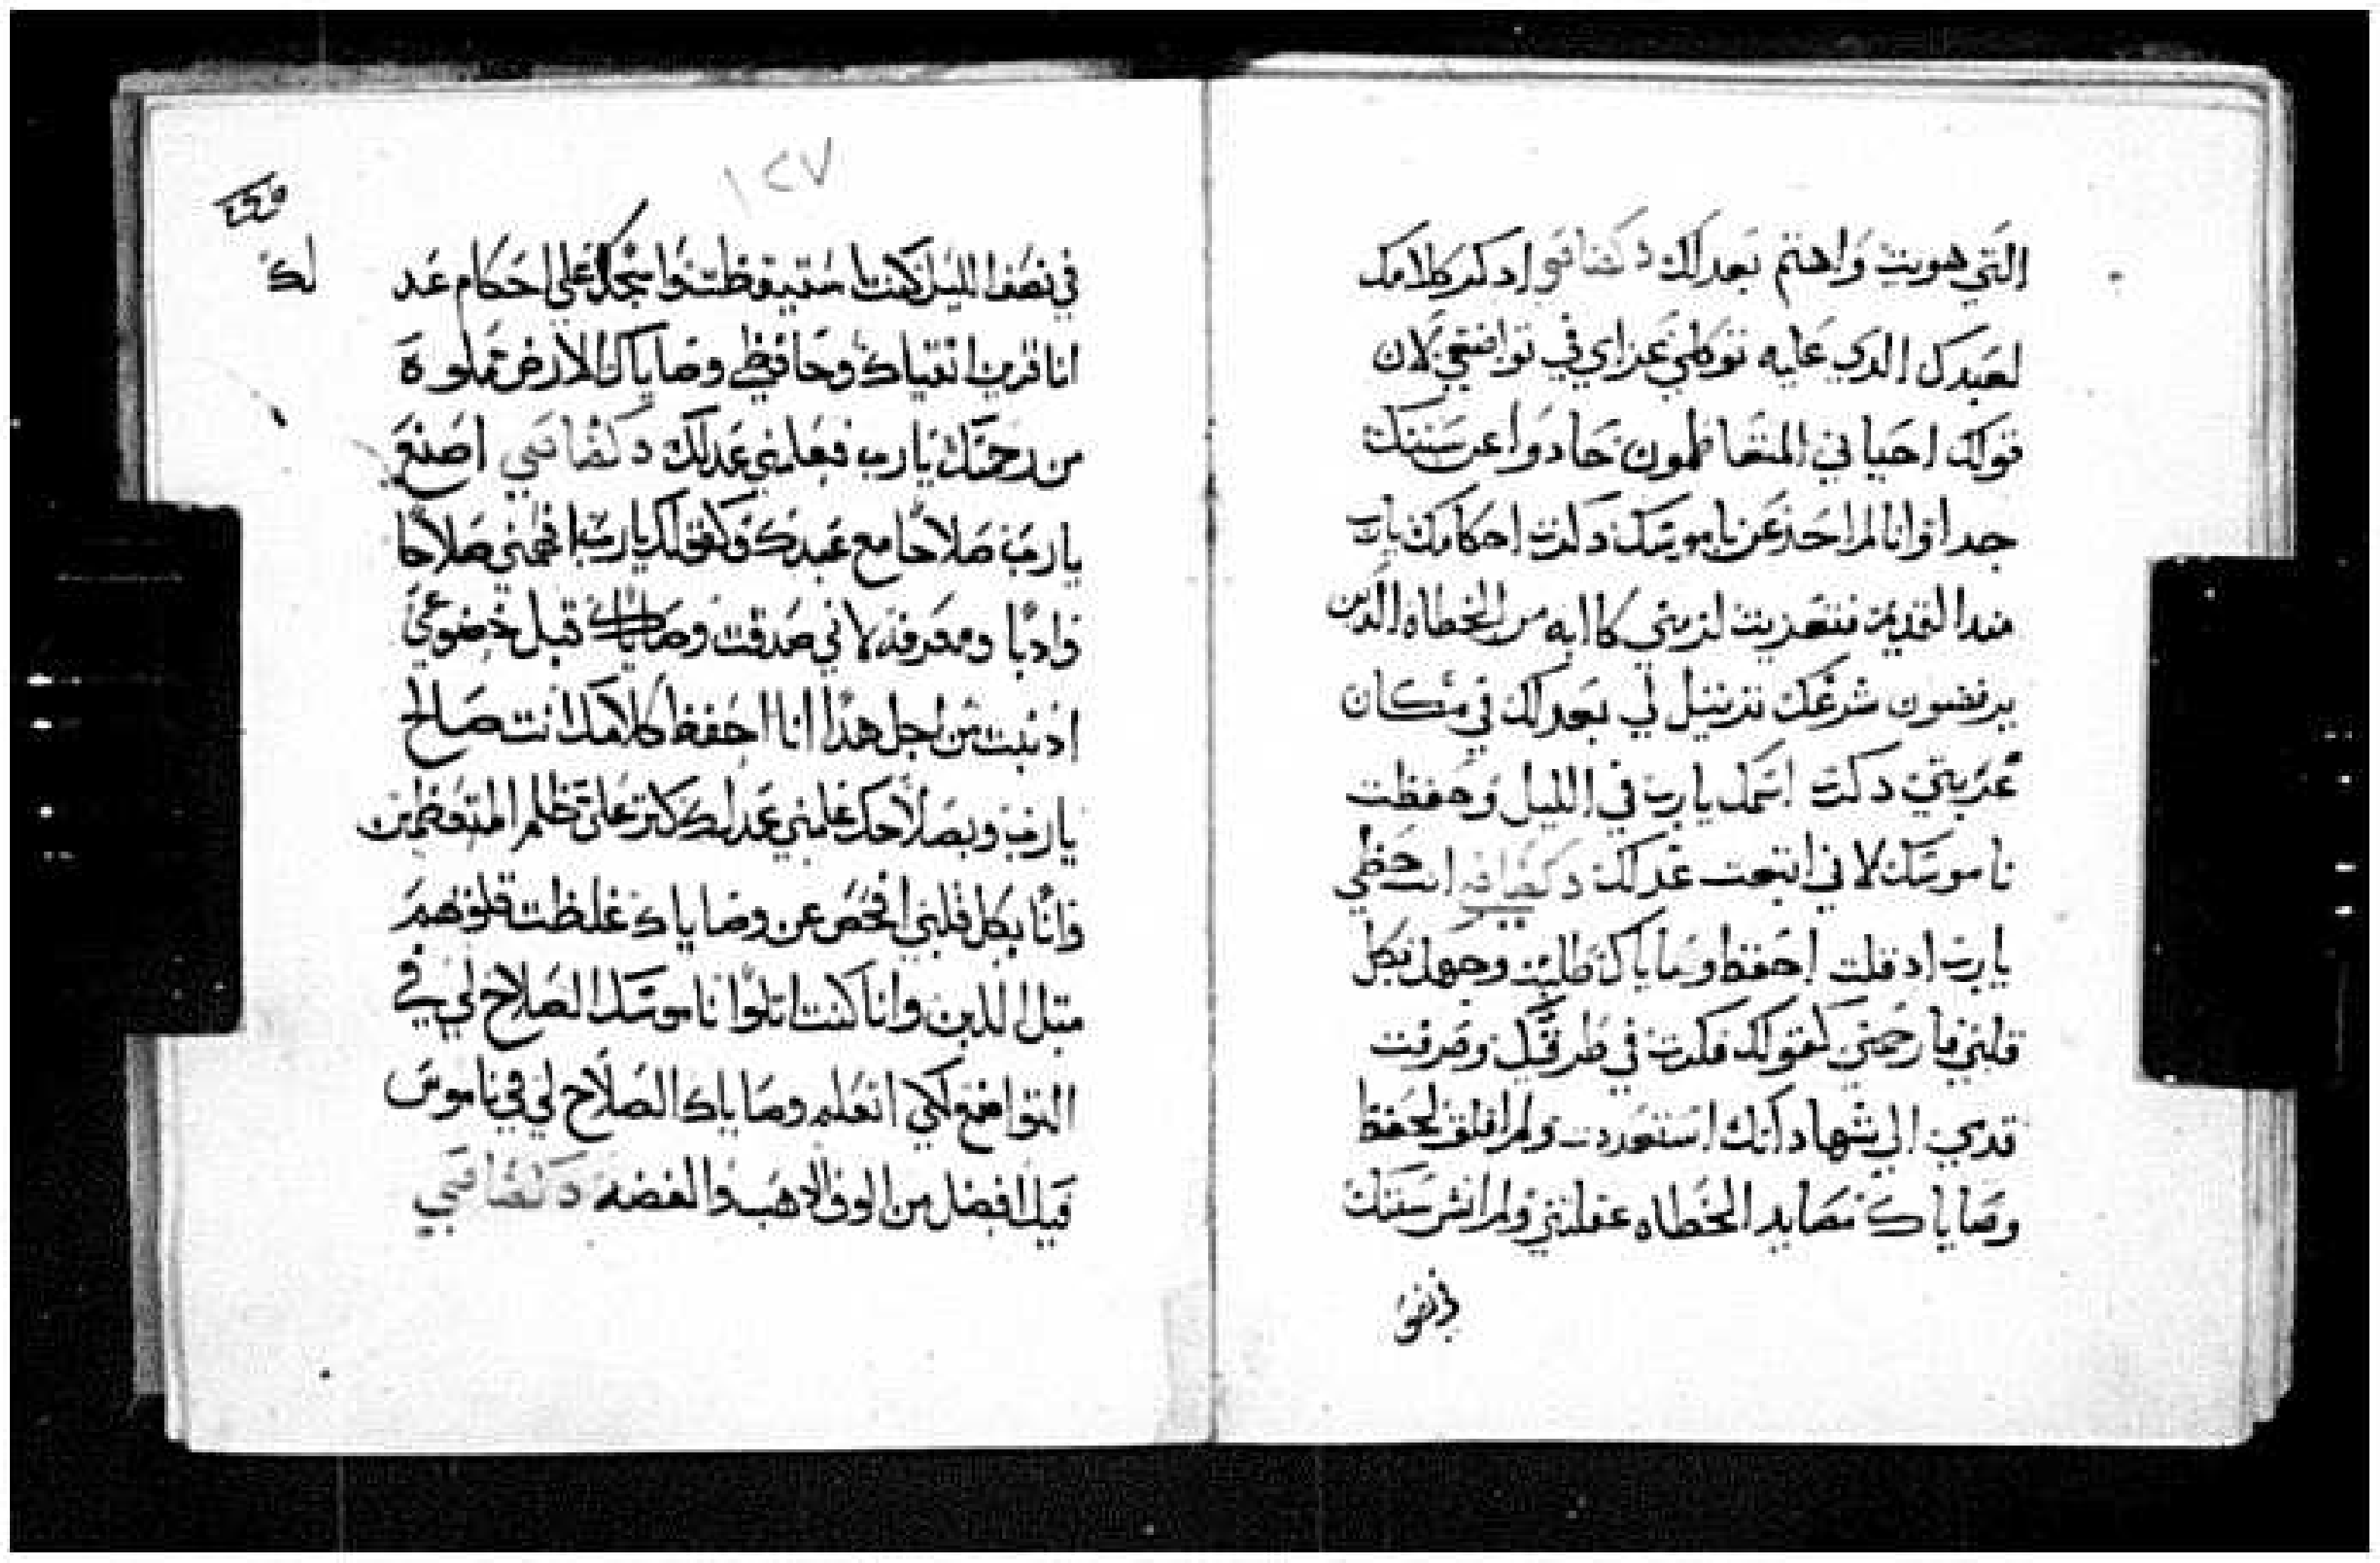 التي هويت واهتم بعدلك دكصاسي ادكر كلامك
لعبدك الدي عليه توكلي عزاي في تواضعي لان
قولك احياني المتعاظمون حادوا عن سننك
جدا وانا لم احد عن ناموسك دكرت احكامك يارب
مند القديم فتعزيت لزمتني كاابه من الخطاه الدين
يرفضون شرعك ترتيل لي بعدلك في مكان
غربتي دكرت اسمك يارب في الليل وحفظت
ناموسك لاني ابتعت عدلك دكصاسي انت حظي
يارب اد قلت احفظ وصاياك طلبت وجهك بكل
قلبي فارحمني كقولك فكرت في طرقك وصرفت
قدمي الي شهاداتك استعددت ولم اقلق لحفظ
وصاياك مصايد الخطاه عقلتني ولم انس سننك
في نصف
١٢٧
في نصف الليل كنت استيقظت واسجد لك علي احكام عد
لك
انا قريب اتقياك وحافظي وصاياك الارض مملوة
من رحمتك يارب فعلمني عدلك دكصاسي اصنع
يارب صلاحا مع عبدك وكقولك يارب افهمني صلاحا
وادبا ومعرفه لاني صدقت وصاياك قبل خضوعي
ادنبت من اجل هدا انا احفظ كلامك انت صالح
يارب وبصلاحك علمني عدلك كتر علي ظلم المتعظمين
وانا بكل قلبي افحص عن وصاياك غلظت قلوبهم
متل اللبن وانا كنت اتلوا ناموسك الصلاح لي في
التواضع لكي اتعلم وصاياك الصلاح لي في ناموس
فيك افضل من الوف الدهب والفضه دكصاسي